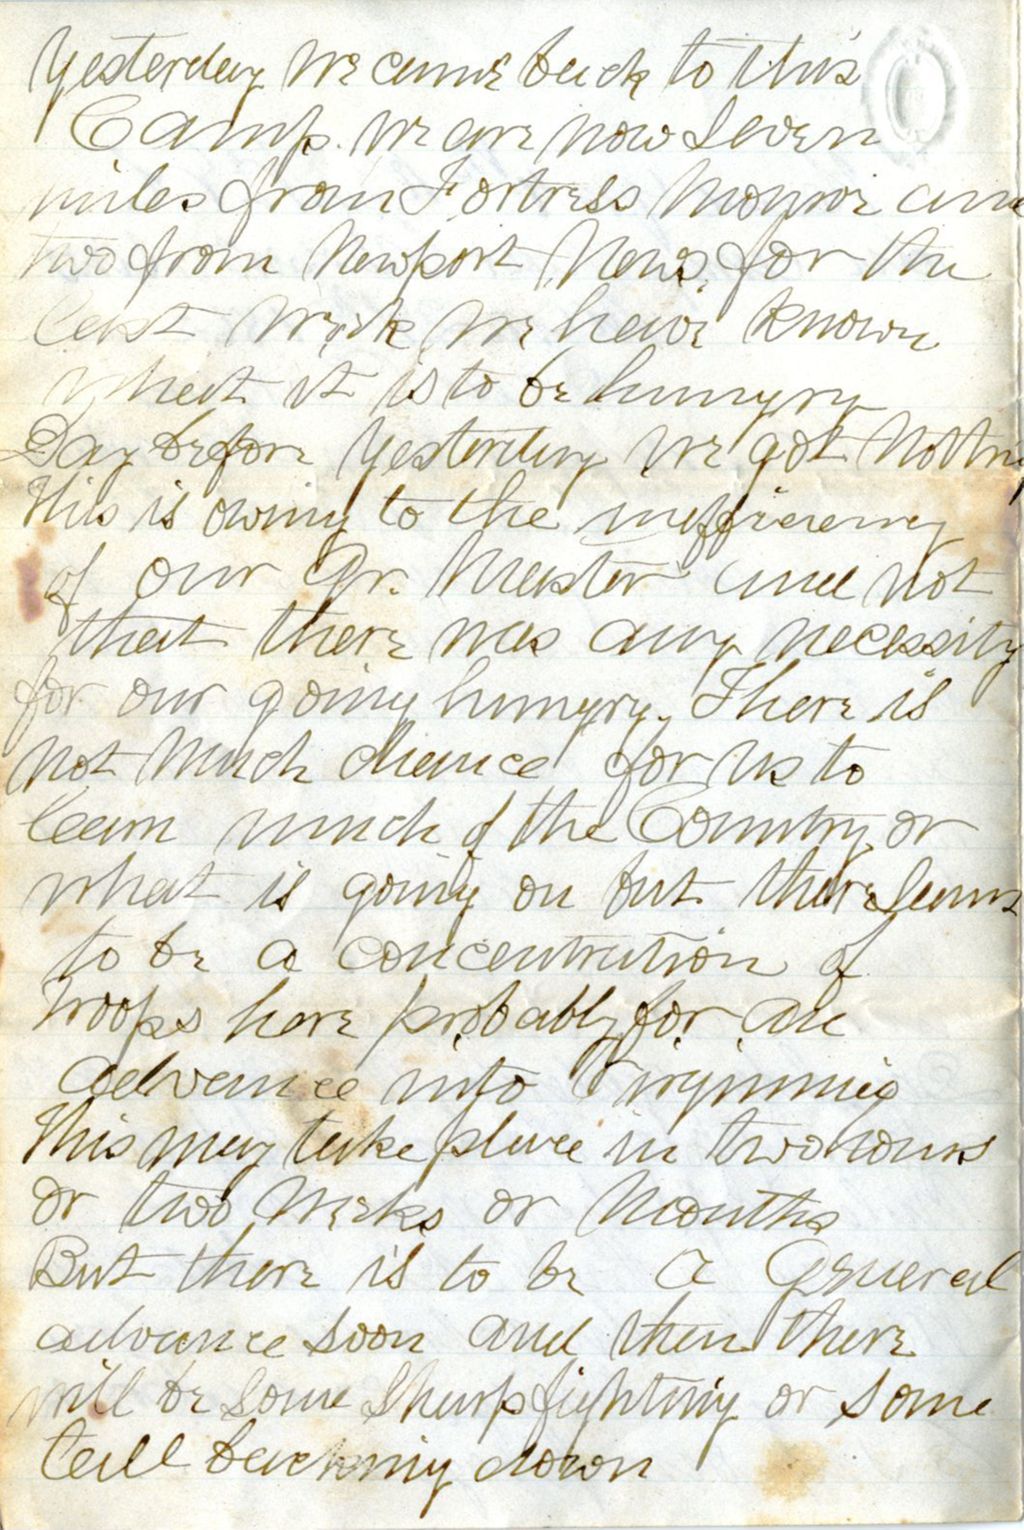 Yesterday we came back to this
Camp. We are now Seven
miles from Fortress Monroe and
two from Newport News, for the
last week we have known
what it is to be hungry
Day before yesterday we got Nothing
This is owing to the inefficiency
of our Qr. Master and not
that there was any necessity
for our going hungry. There is
not much chance for us to
learn much of the Country or
what is going on but there Seems
to be a concentration of
troops here probably for an
advance into Virginnia
This may take place in two hours
or two weeks or Months
But there is to be a General
advance soon and then there
will be some Sharp fighting or some
tall backing down